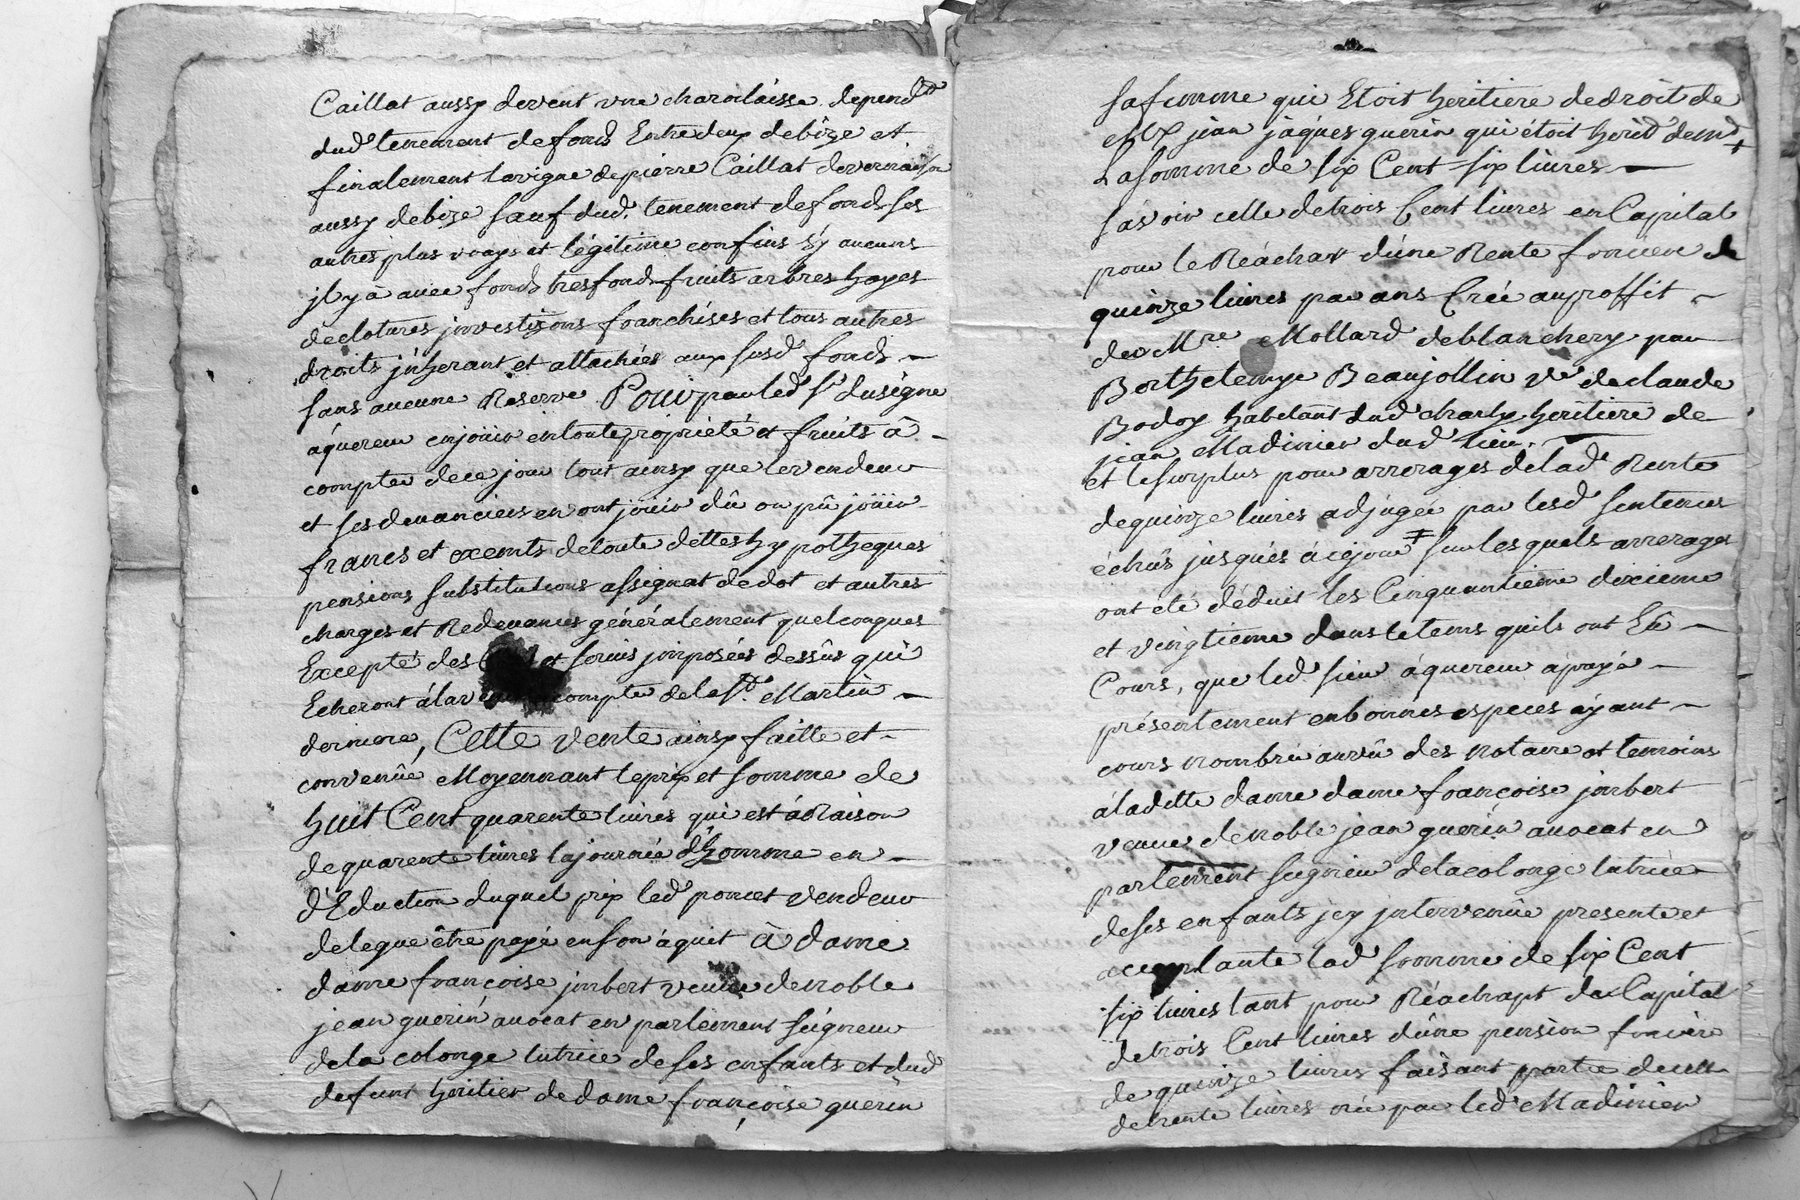 Caillat aussy devent une charoilaisse depend.
dud. tenement de fond Entredeux de bize et
finalement la vigne de pierre Caillat
aussy de bize sauf dud. tenement de fond ses
autres plus vrays et légitime confins sy aucuns
jl y à avec fond tresfond fruits arbres hayes
de clotures jnvestizons franchises et tous autres
droits jnherant et attachées aux susd. fond
sans aucune Réserve Pour par led. Sr. Lusigne
âquereur en joüir en toute propriété et fruits à
compter de ce jour tout ainsy que le vendeur
et ses devanciers en ont joüir dû ou pû joüir
francs et exemts de toute dettes hypotheques
pensions substitutions assignat de dot et autres
charges et Redevances généralement quelconques
Excepté des et servis jmposées dessûs qui
Echeront à la compter de la St. Martin
derniere, Cette vente ainsy faitte et
convenûe Moyennant le prix et somme de
huit Cent quarente livres qui est à Raison
de quarente livres la journée d'homme en
d'Eduction duquel prix led. poncet vendeur
delegue être payé en son âquit à dame
dame françoise jmbert veuve de noble
jean guerin avocat en parlement seigneur
de la colonge tutrice de ses enfants et dud.
defunt héritier de dame françoise guerin
sa femme qui Etoit heritiere de droit de
Mre jean jâques guerin qui étoit herit. de md. +
La somme de six Cent six livres
sâvoir celle de trois Cent livres en Capital
pour le Réachat d'une Rente fonciere de
quinze livres par ans Créé au proffit
de Mre. Mollard de blanchery par
Borthelemye Beaujollin ve. de claude
Bodoy habitant dud. charly heritiere de
jean Madinier dud. lieu.
et le surplus pour arrerages de lad. Rente
de quinze livres adjugée par lesd. sentences
échûs jusqués à ce jour ‡ sur lesquels arrerages
ont eté déduit les Cinquantieme dixieme
et vingtieme dans le tems quils ont Eû
Cours, que led. sieur âquereur a payé
présentement en bonnes especes âyant
cours nombrée au vû des notaire et temoins
à laditte dame dame françoise jmbert
veuve de noble jean guerin avocat en
parlement seigneur de la colonge tutrice
de ses enfants jcy jntervenûe presente et
acceptante lad. somme de six Cent
six livres tant pour Réachapt du Capital
de trois Cent livres d'une pension fonciere
de quinze livres faisant partie de celle
de trente livres créé par led. Madinier